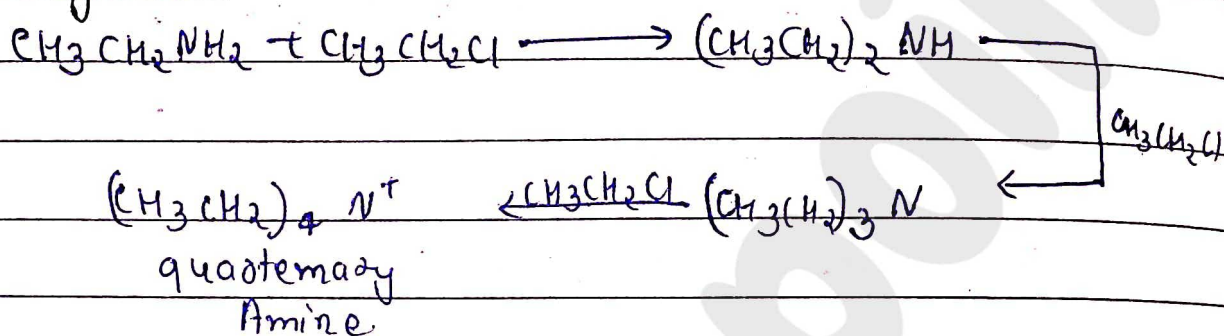 CH3CH2NH2 + CH3CH2Cl ⟶ (CH3CH2)2 NH
CH3CH2Cl
(CH3CH2)4 N+ ← CH3CH2Cl (CH3CH2)3 N
quaternary
Amine